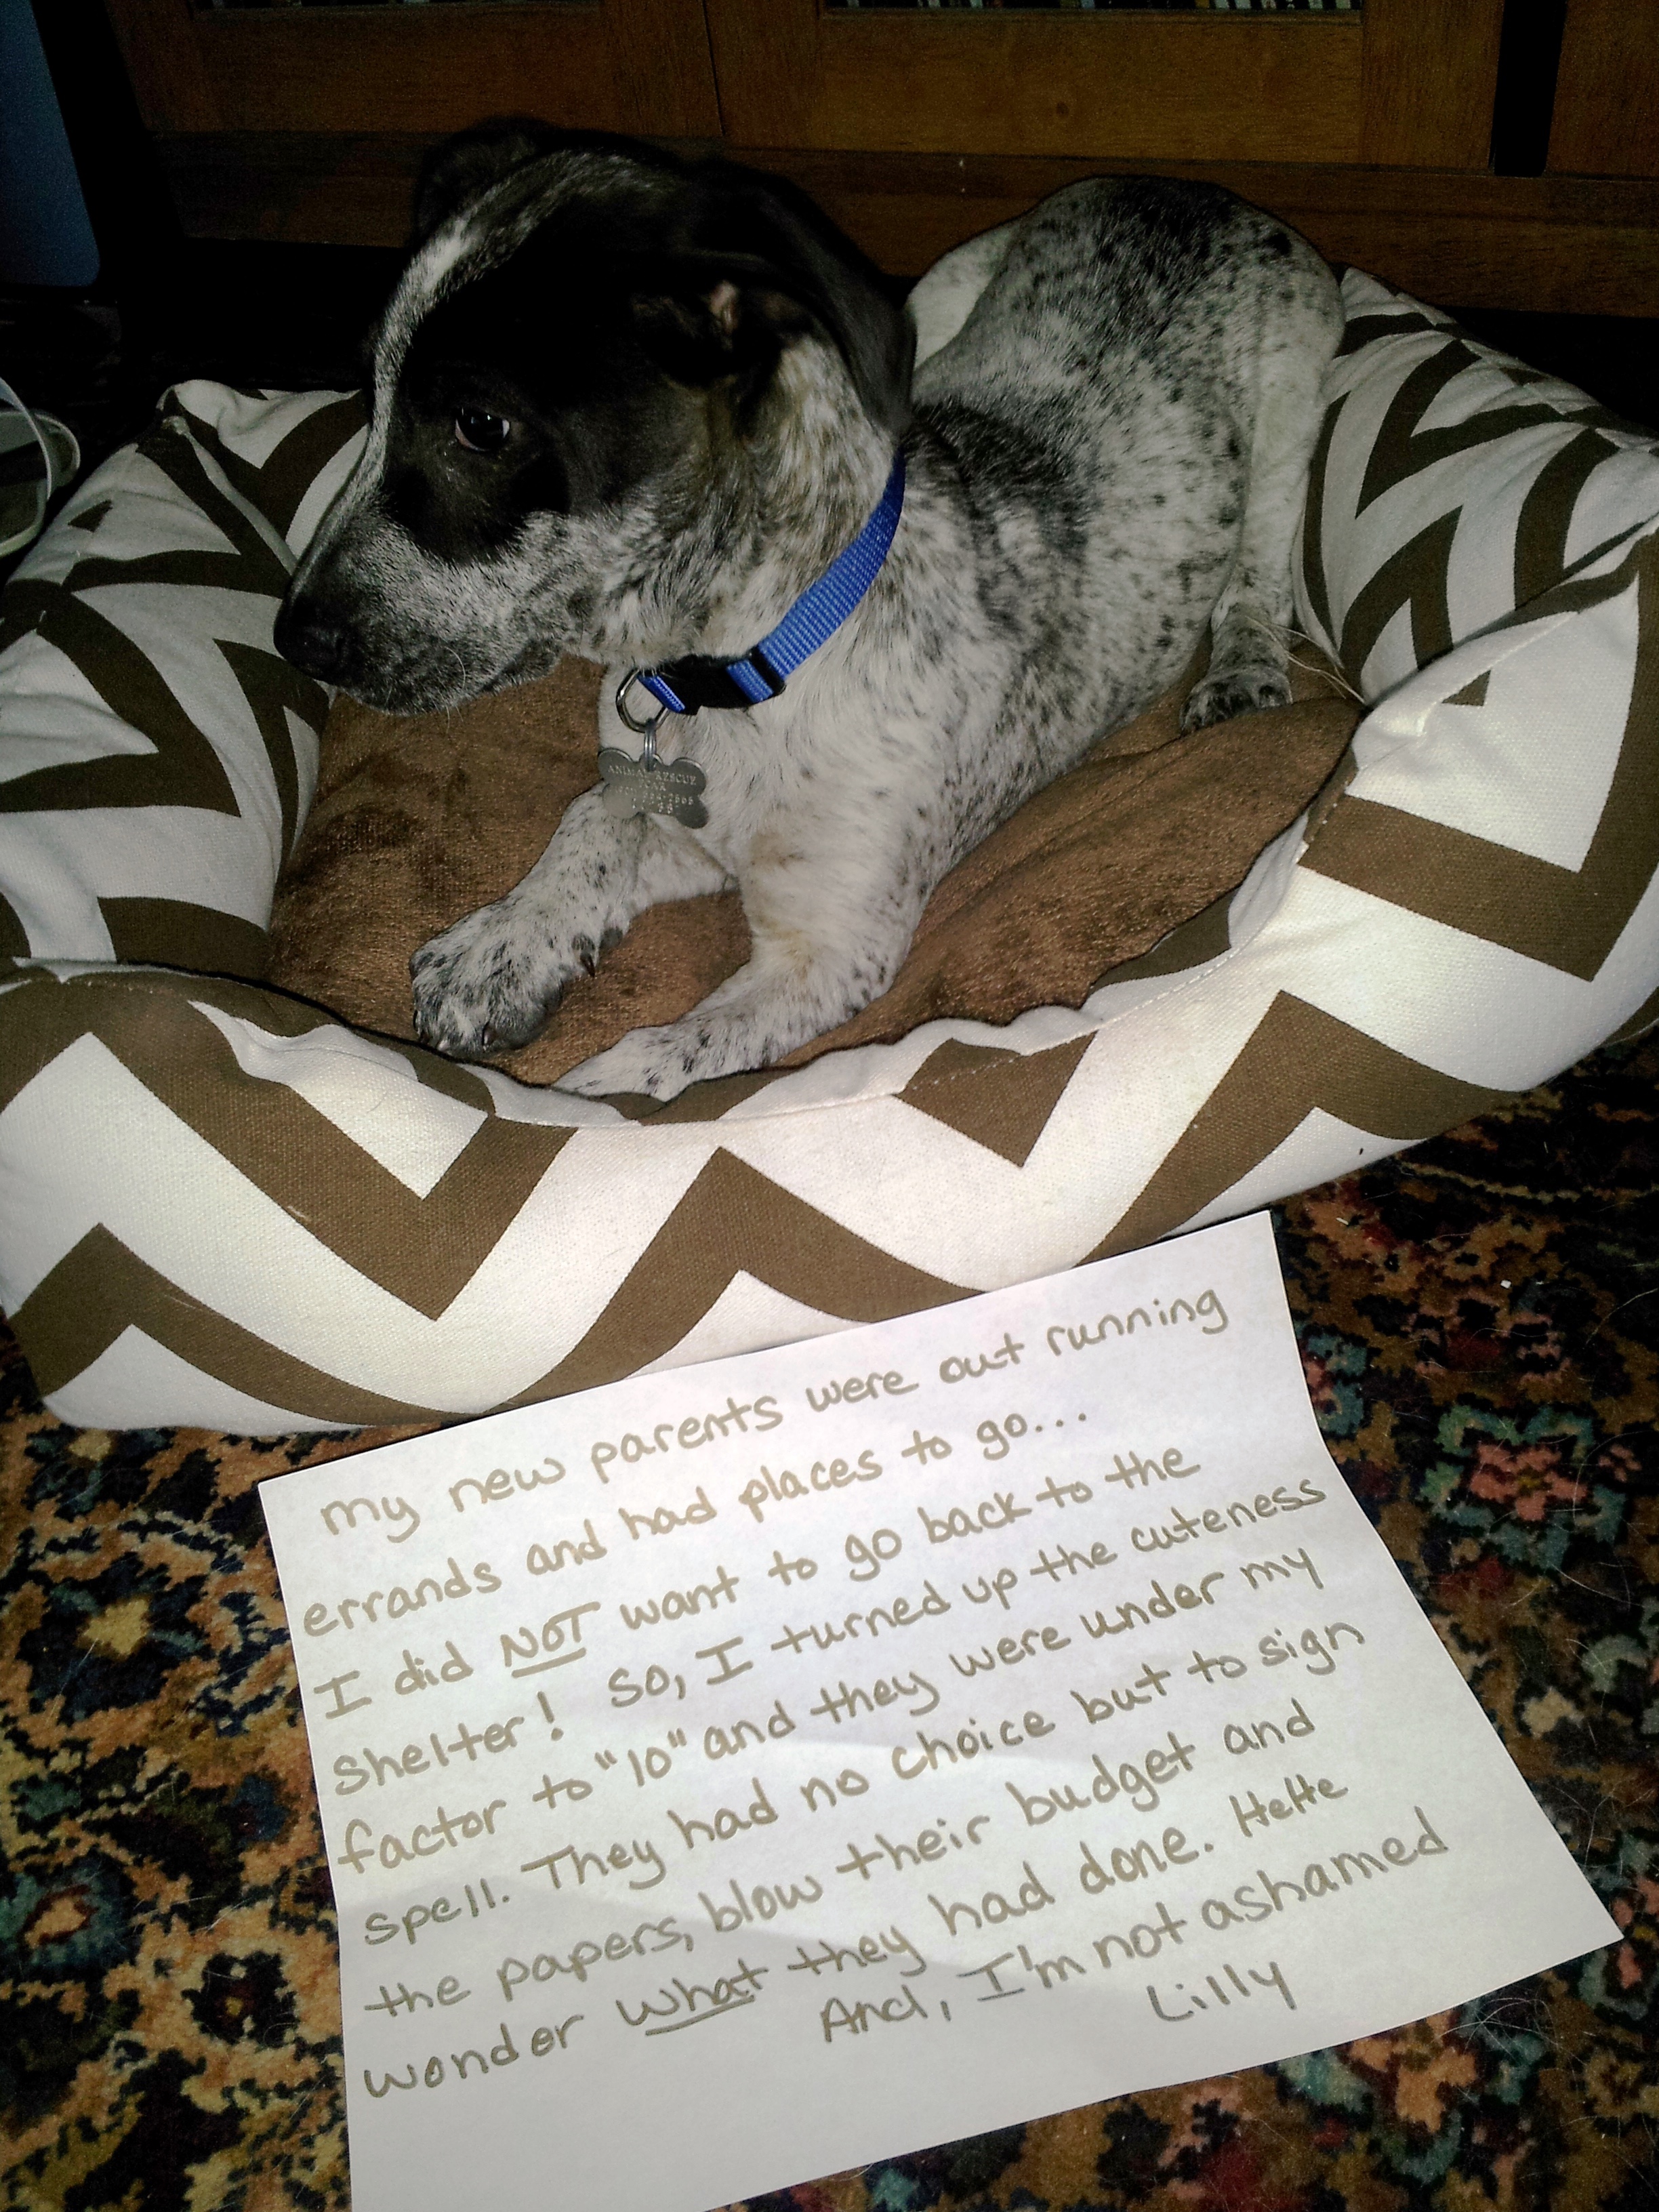 ANIMAL RESCUE
my new parents were out running
errands and had places to go...
I did NOT want to go back to the
Shelter! So, I turned up the cuteness
factor to "10" and they were under my
spell. They had no choice but to sign
the papers, blow their budget and
wonder what they had done. HeHe
And, I'm not ashamed
Lilly